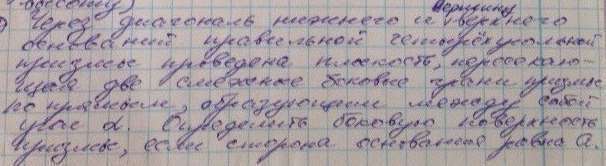 высоту)
вершину
Через диагональ нижнего и верхнего
оснований правильной четырёхугольной
призмы проведена плоскость, пересекаю-
щая две смежные боковые грани призмы
по прямым, образующим между собой
угол α. Определить боковую поверхность
призмы, если сторона основания равна а.